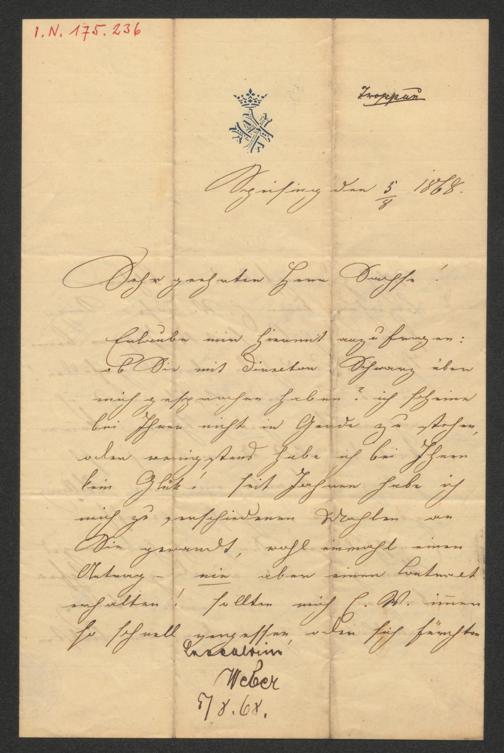 I.N. 175.236
Troppau
Speising den 5/8 1868.
Sehr geehrter Herr Sachse!
Erlaube mir hiermit anzufragen:
ob Sie mit Director Schwarz über
mich gesprochen haben? ich scheine
bei Ihnen nicht in Gnade zu stehen,
oder wenigstens habe ich bei Ihnen
kein Glük! seit Jahren habe ich
mich zu verschiedenen Mahlen an
Sie gewandt, wohl einmahl einen
Antrag – nie aber einen Contract
erhalten! sollten mich E. W. immer
so schnell vergessen oder sich fürchten
Weber
5/8.68.